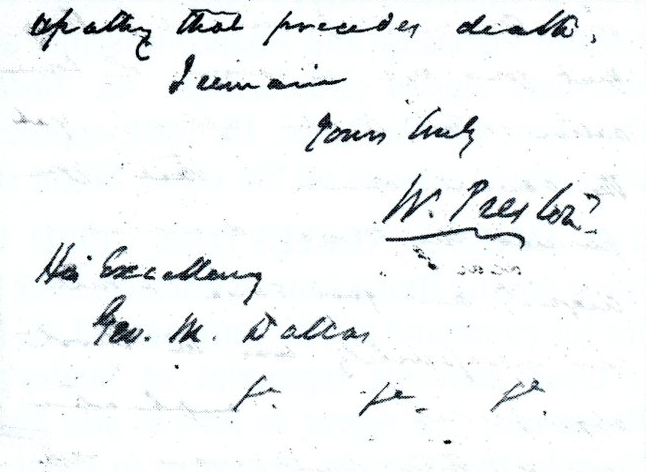 apathy that precedes death.
I remain
Yours truly
W. Preston
His Excellency
Geo. M. Dallas
&c. &c. &c.